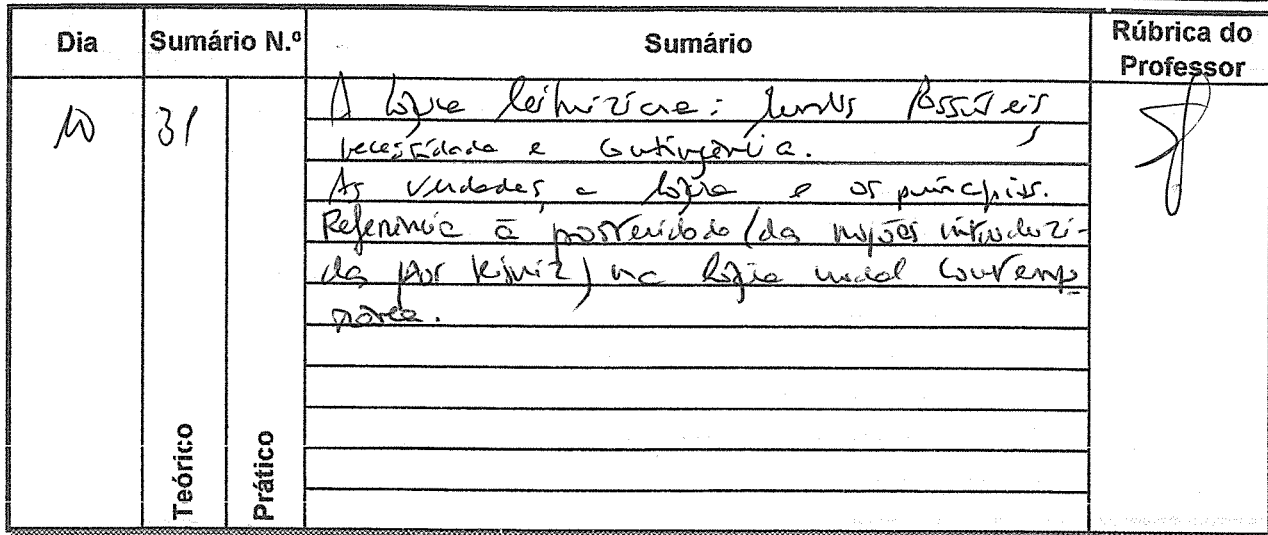 Dia Sumário N.º Sumário Rúbrica do Professor
10 31
A lógica leibniziana: mundos possíveis,
necessidade e contingência.
As verdades, a lógica e os princípios.
Referência à posteridade (das noções introduzi-
das por Leibniz) na lógica modal contempo
rânea.
Teórico
Prático